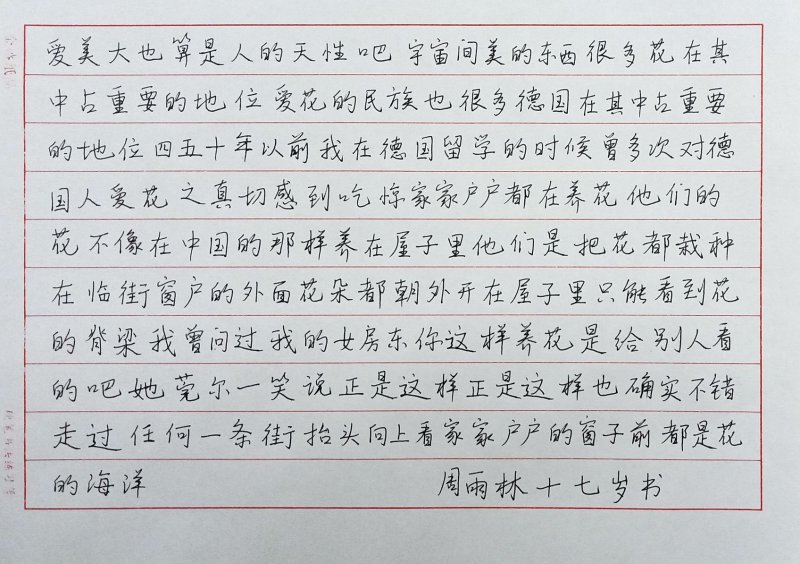 爱美大也算是人的天性吧宇宙间美的东西很多花在其
中占重要的地位爱花的民族也很多德国在其中占重要
的地位四五十年以前我在德国留学的时候曾多次对德
国人爱花之真切感到吃惊家家户户都在养花他们的
花不像在中国的那样养在屋子里他们是把花都栽种
在临街窗户的外面花朵都朝外开在屋子里只能看到花
的脊梁我曾问过我的女房东你这样养花是给别人看
的吧她莞尔一笑说正是这样正是这样也确实不错
走过任何一条街抬头向上看家家户户的窗子前都是花
的海洋 周雨林十七岁书